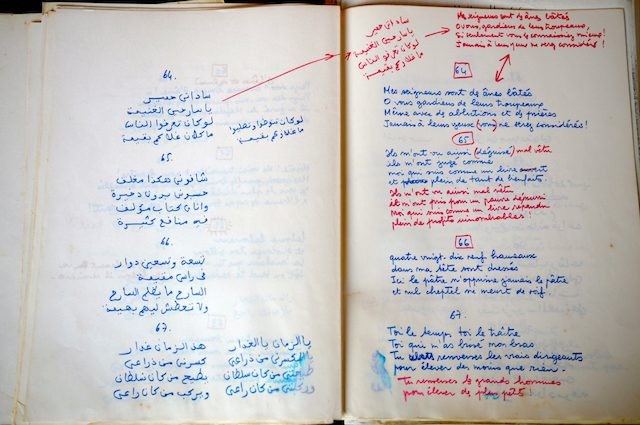 64.
ساداتي حمير
يا سارحين الغنيمة
لو كان تعرفوا الناس
ما كان علاكم بقيمة
لو كان تتوضوا وتصليوا
ما علاكم بقيمة
65.
شافوني هكذا مغلف
حسبوني ما فيّ ذخيرة
وانا كي كتاب مؤلف
فيه منافع كثيرة
66.
تسعة وتسعين دوار
في راسي مقيمة
السارح ما يظلم السارح
ولا تعطش ليهم بهيمة
67.
هذا الزمان غدار
كسرني من ذراعي
يطيح من كان سلطان
ويركب من كان راعي
يا الزمان يا الغدار
يا الكسرني من ذراعي
طيحتي من كان سلطان
وركبتي من كان راعي
ساداتي حمير
يا سارحين الغنيمة
لو كان تعرفوا الناس
ما علاكم بقيمة
Mes seigneurs sont des ânes bâtés
O vous, gardiens de leurs troupeaux,
Si seulement vous les connaissiez mieux!
Jamais à leurs yeux ne serez considérés!
64
Mes seigneurs sont de ânes bâtés
O vous gardiens de leurs troupeaux
Même avec des ablutions et des prières
Jamais à leurs yeux (vous) ne serez considérés!
65
Ils m'ont vu aussi (déguisé) mal vêtu
ils m'ont jugé comme
moi qui suis comme un livre ouvert
et plein de tant de bienfaits.
Ils m'ont vu aussi mal vêtu
et m'ont pris pour un pauvre
Moi qui suis comme un livre
plein de profits innombrables!
66
quatre vingt. dix neuf hameaux
dans ma tête sont dressés
Ici le pâtre n'opprime jamais le pâtre
et nul cheptel ne meurt de soif.
67.
Toi le temps toi le traître
Toi qui m'as brisé mon bras
Tu renverses les vrais dirigeants
pour élever des moins que rien.
Tu renverses les grands hommes
pour élever de plus petits